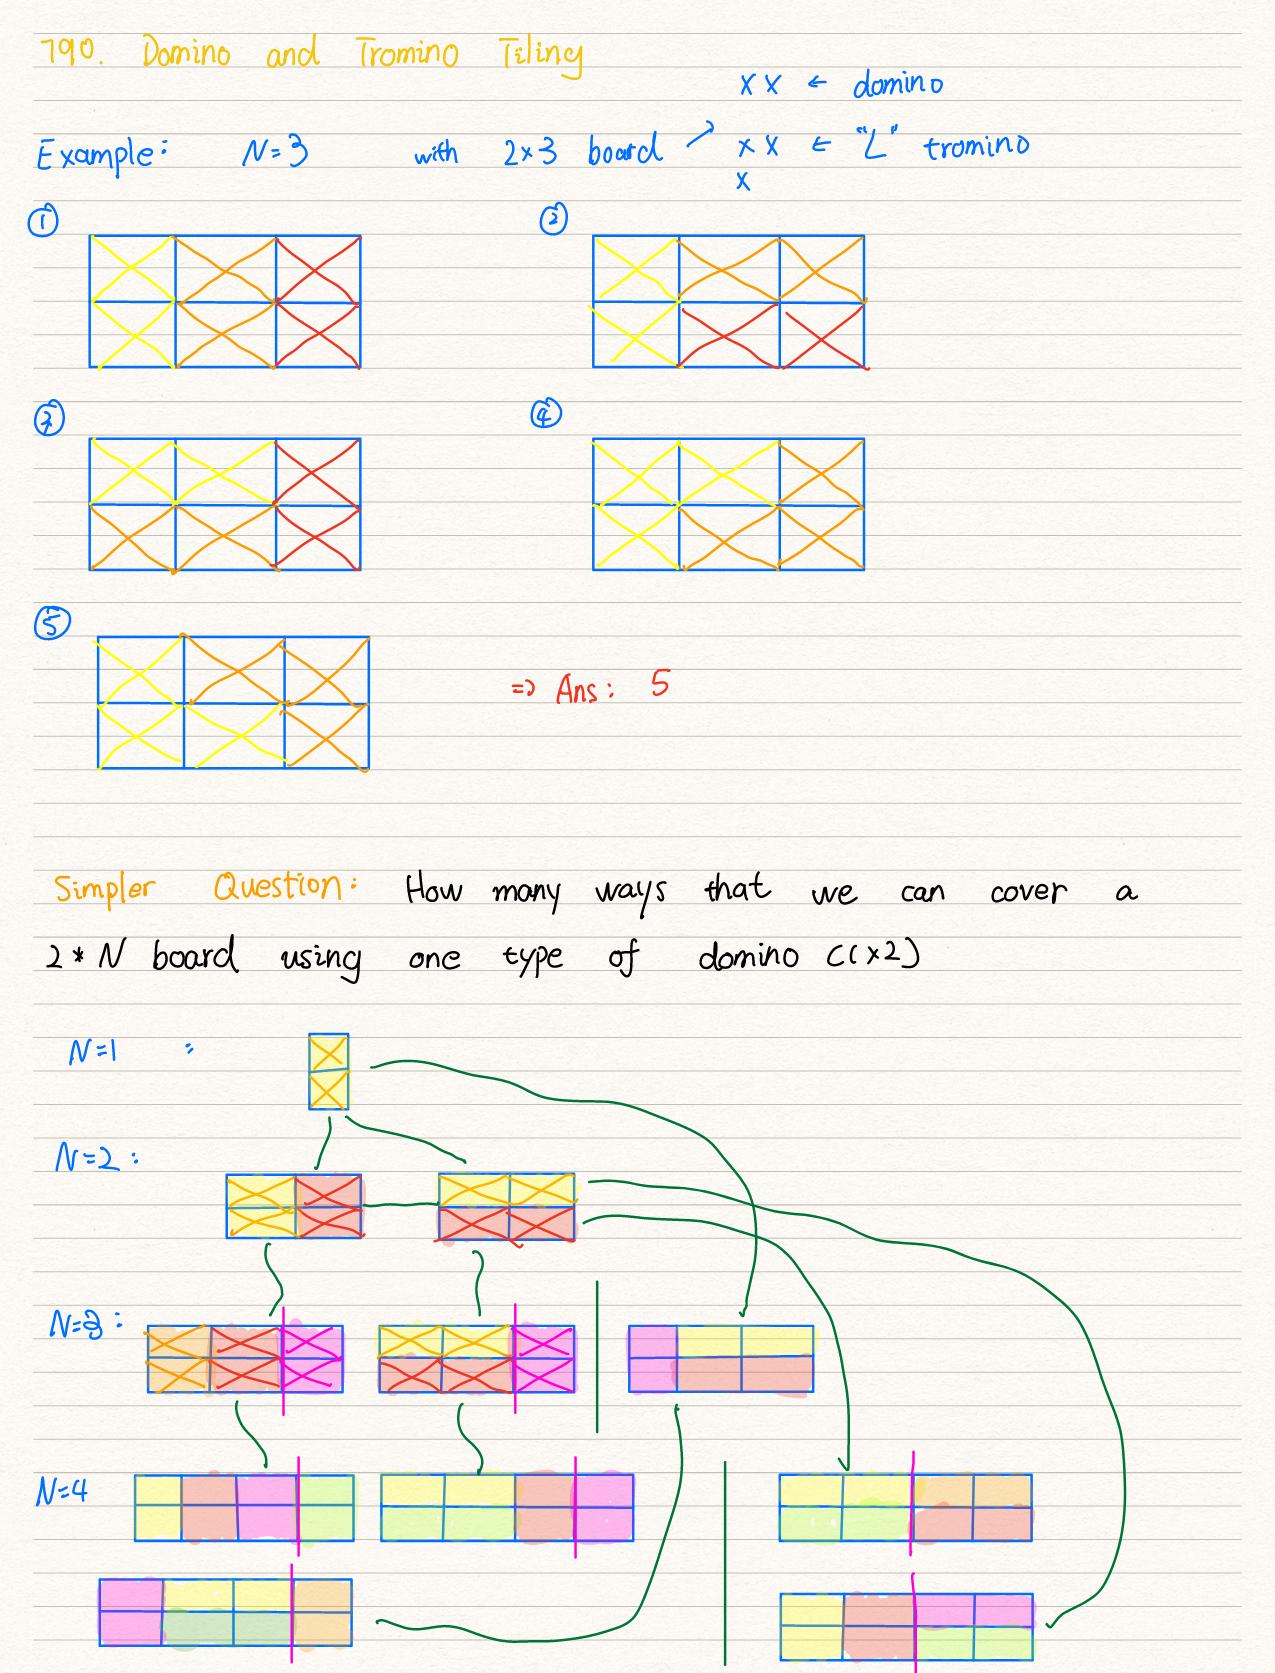 790. Domino and Tromino Tiling
X X ← domino
Example: N=3 with 2×3 board ↗ X X ← "L" tromino
X
①
②
③
④
⑤
⇒ Ans: 5
Simpler Question: How many ways that we can cover a
2*N board using one type of domino (1×2)
N=1 :
N=2 :
N=3 :
N=4